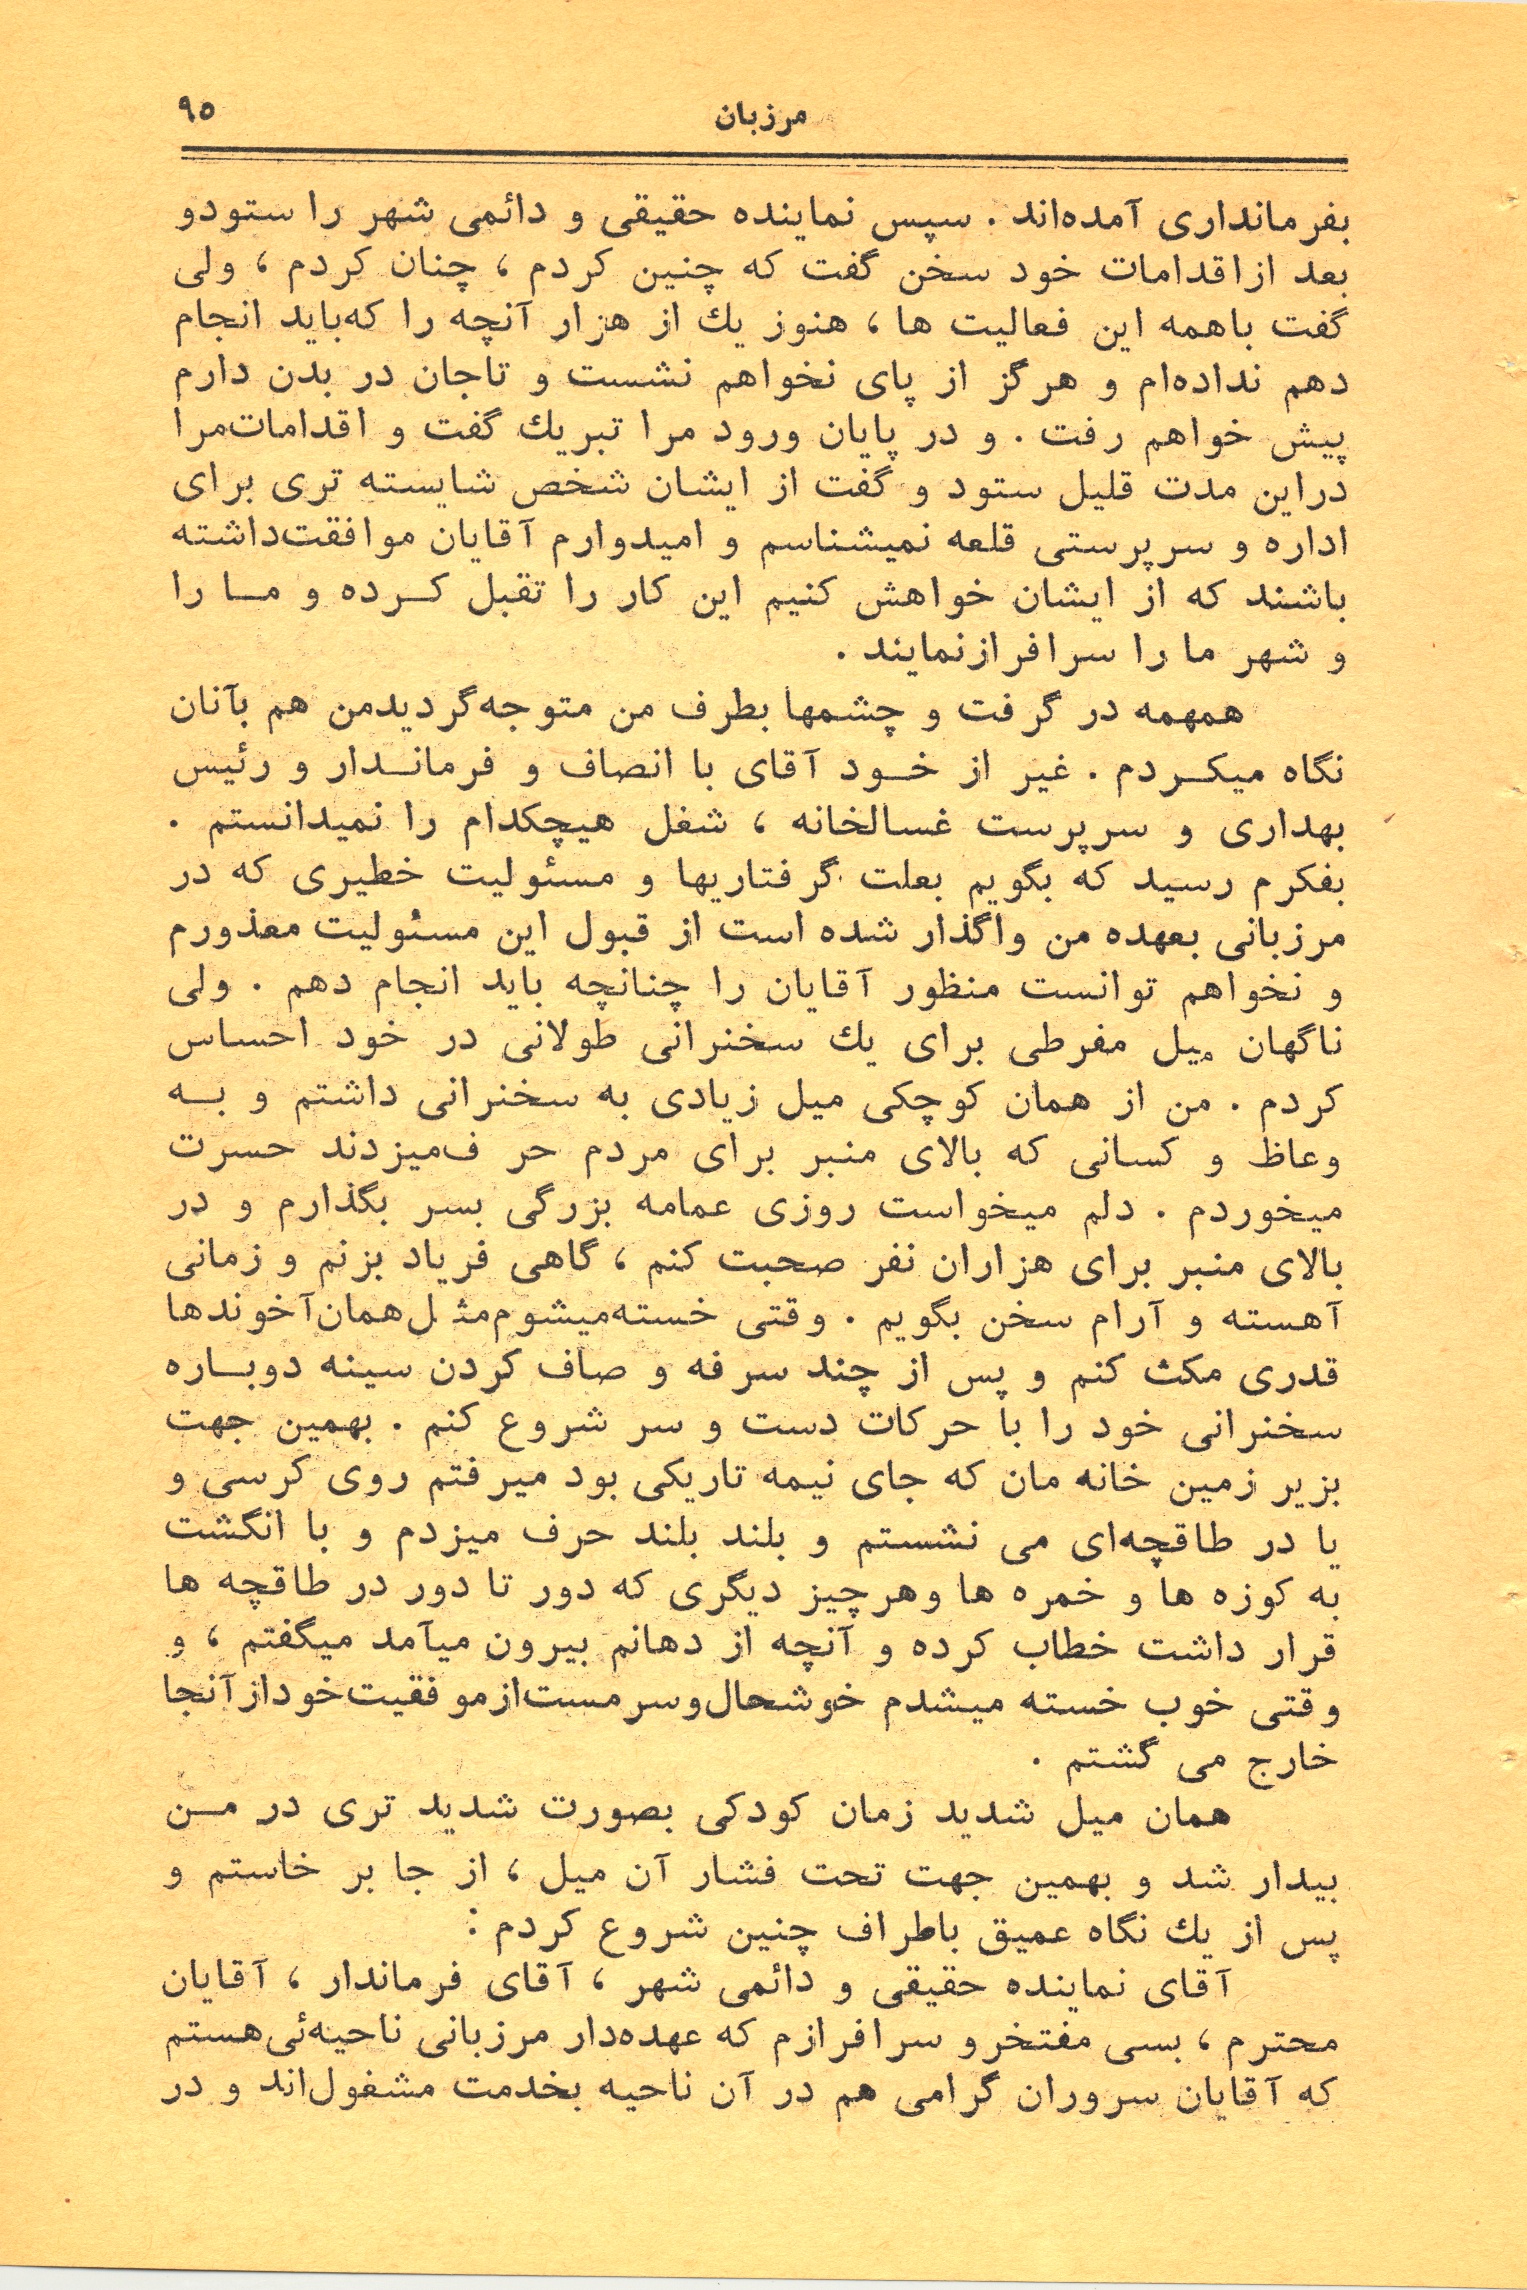 مرزبان ۹۵
بفرمانداری آمده‌اند . سپس نماینده حقیقی و دائمی شهر را ستودو
بعد ازاقدامات خود سخن گفت که چنین کردم ، چنان کردم ، ولی
گفت باهمه این فعالیت ها ، هنوز یك از هزار آنچه را که‌باید انجام
دهم نداده‌ام و هرگز از پای نخواهم نشست و تاجان در بدن دارم
پیش خواهم رفت . و در پایان ورود مرا تبریك گفت و اقدامات‌مرا
دراین مدت قلیل ستود و گفت از ایشان شخص شایسته تری برای
اداره و سرپرستی قلعه نمیشناسم و امیدوارم آقایان موافقت‌داشته
باشند که از ایشان خواهش کنیم این کار را تقبل کـرده و مـا را
و شهر ما را سرافرازنمایند .
همهمه در گرفت و چشمها بطرف من متوجه‌گردیدمن هم بآنان
نگاه میکـردم . غیر از خـود آقای با انصاف و فرمانـدار و رئیس
بهداری و سرپرست غسالخانه ، شغل هیچکدام را نمیدانستم .
بفکرم رسید که بگویم بعلت گرفتاریها و مسئولیت خطیری که در
مرزبانی بعهده من واگذار شده است از قبول این مسئولیت معذورم
و نخواهم توانست منظور آقایان را چنانچه باید انجام دهم . ولی
ناگهان میل مفرطی برای یك سخنرانی طولانی در خود احساس
کردم . من از همان کوچکی میل زیادی به سخنرانی داشتم و بـه
وعاظ و کسانی که بالای منبر برای مردم حر ف‌میزدند حسرت
میخوردم . دلم میخواست روزی عمامه بزرگی بسر بگذارم و در
بالای منبر برای هزاران نفر صحبت کنم ، گاهی فریاد بزنم و زمانی
آهسته و آرام سخن بگویم . وقتی خسته‌میشوم‌مثل‌همان‌آخوندها
قدری مکث کنم و پس از چند سرفه و صاف کردن سینه دوبـاره
سخنرانی خود را با حرکات دست و سر شروع کنم . بهمین جهت
بزیر زمین خانه مان که جای نیمه تاریکی بود میرفتم روی کرسی و
یا در طاقچه‌ای می نشستم و بلند بلند حرف میزدم و با انگشت
به کوزه ها و خمره ها وهرچیز دیگری که دور تا دور در طاقچه ها
قرار داشت خطاب کرده و آنچه از دهانم بیرون میآمد میگفتم ، و
وقتی خوب خسته میشدم خوشحال‌وسرمست‌ازموفقیت‌خودازآنجا
خارج می گشتم .
همان میل شدید زمان کودکی بصورت شدید تری در مـن
بیدار شد و بهمین جهت تحت فشار آن میل ، از جا بر خاستم و
پس از یك نگاه عمیق باطراف چنین شروع کردم :
آقای نماینده حقیقی و دائمی شهر ، آقای فرماندار ، آقایان
محترم ، بسی مفتخرو سرافرازم که عهده‌دار مرزبانی ناحیه‌ئی‌هستم
که آقایان سروران گرامی هم در آن ناحیه بخدمت مشغول‌اند و در